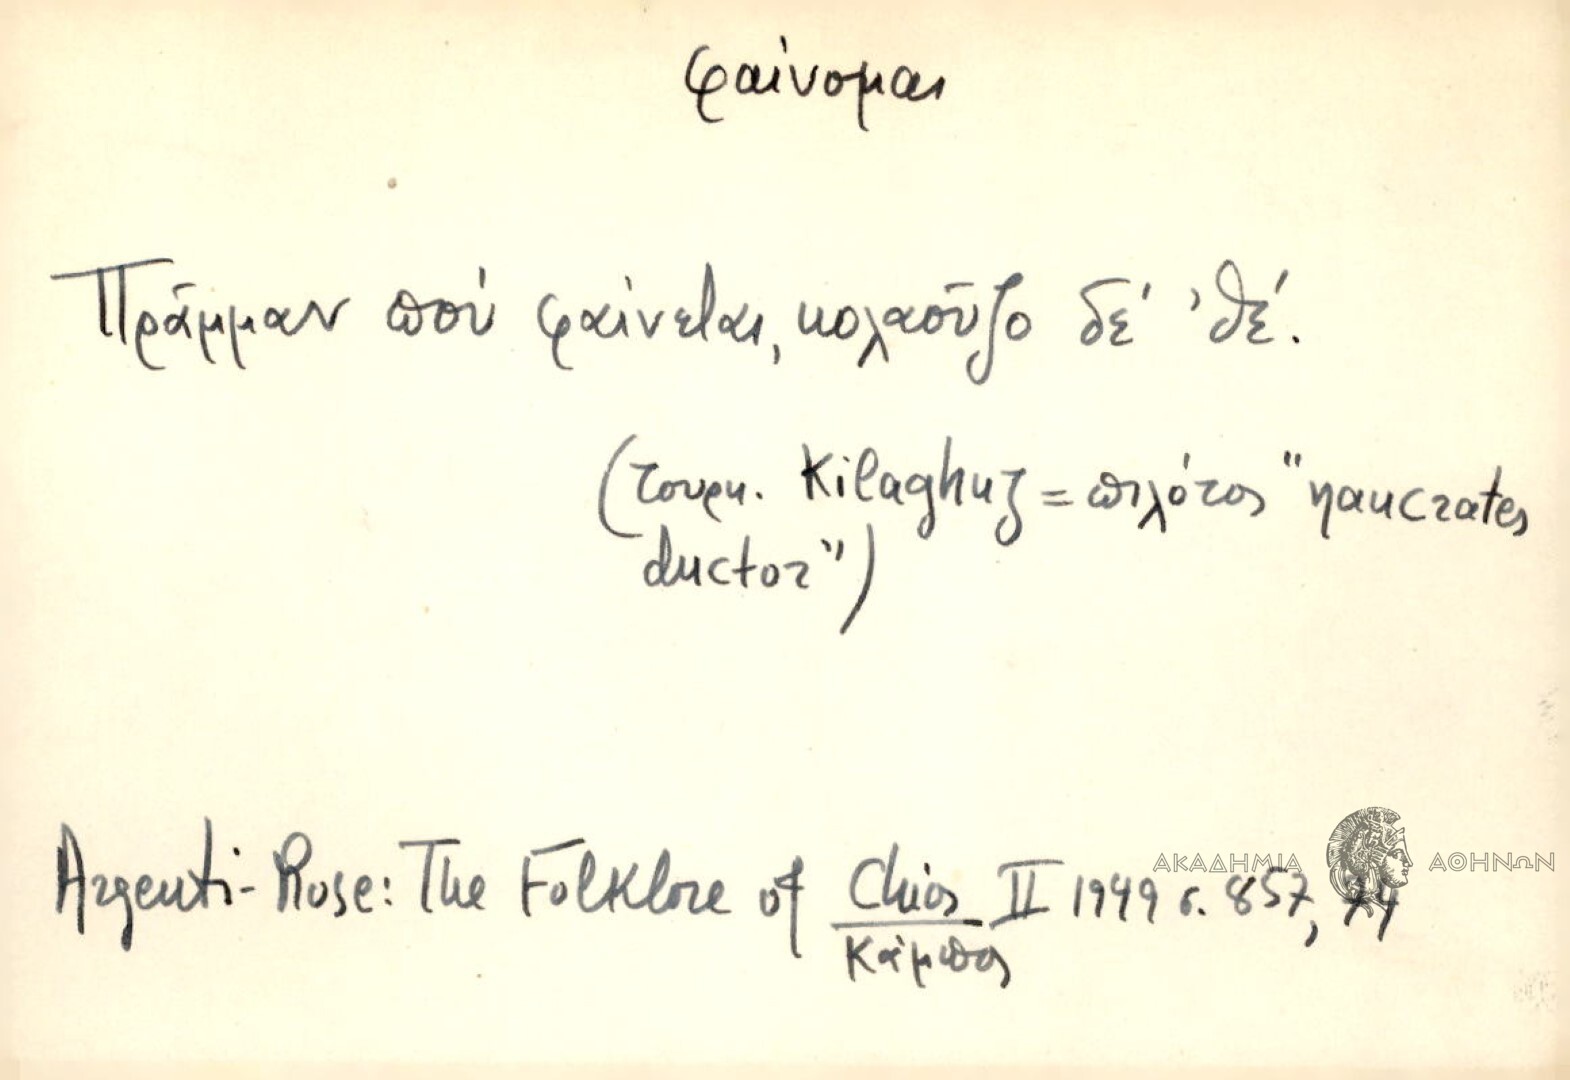 φαίνομαι
Πρᾶμμαν ποὺ φαίνεται, κολαοῦζο δέ 'θέ.
(τουρκ. Kilaghuz = πιλότος "naucrates
ductor")
Argenti-Rose: The Folklore of Chios II 1949 σ. 857,
Κάμπος
ΑΚΑΔΗΜΙΑ ΑΘΗΝΩΝ